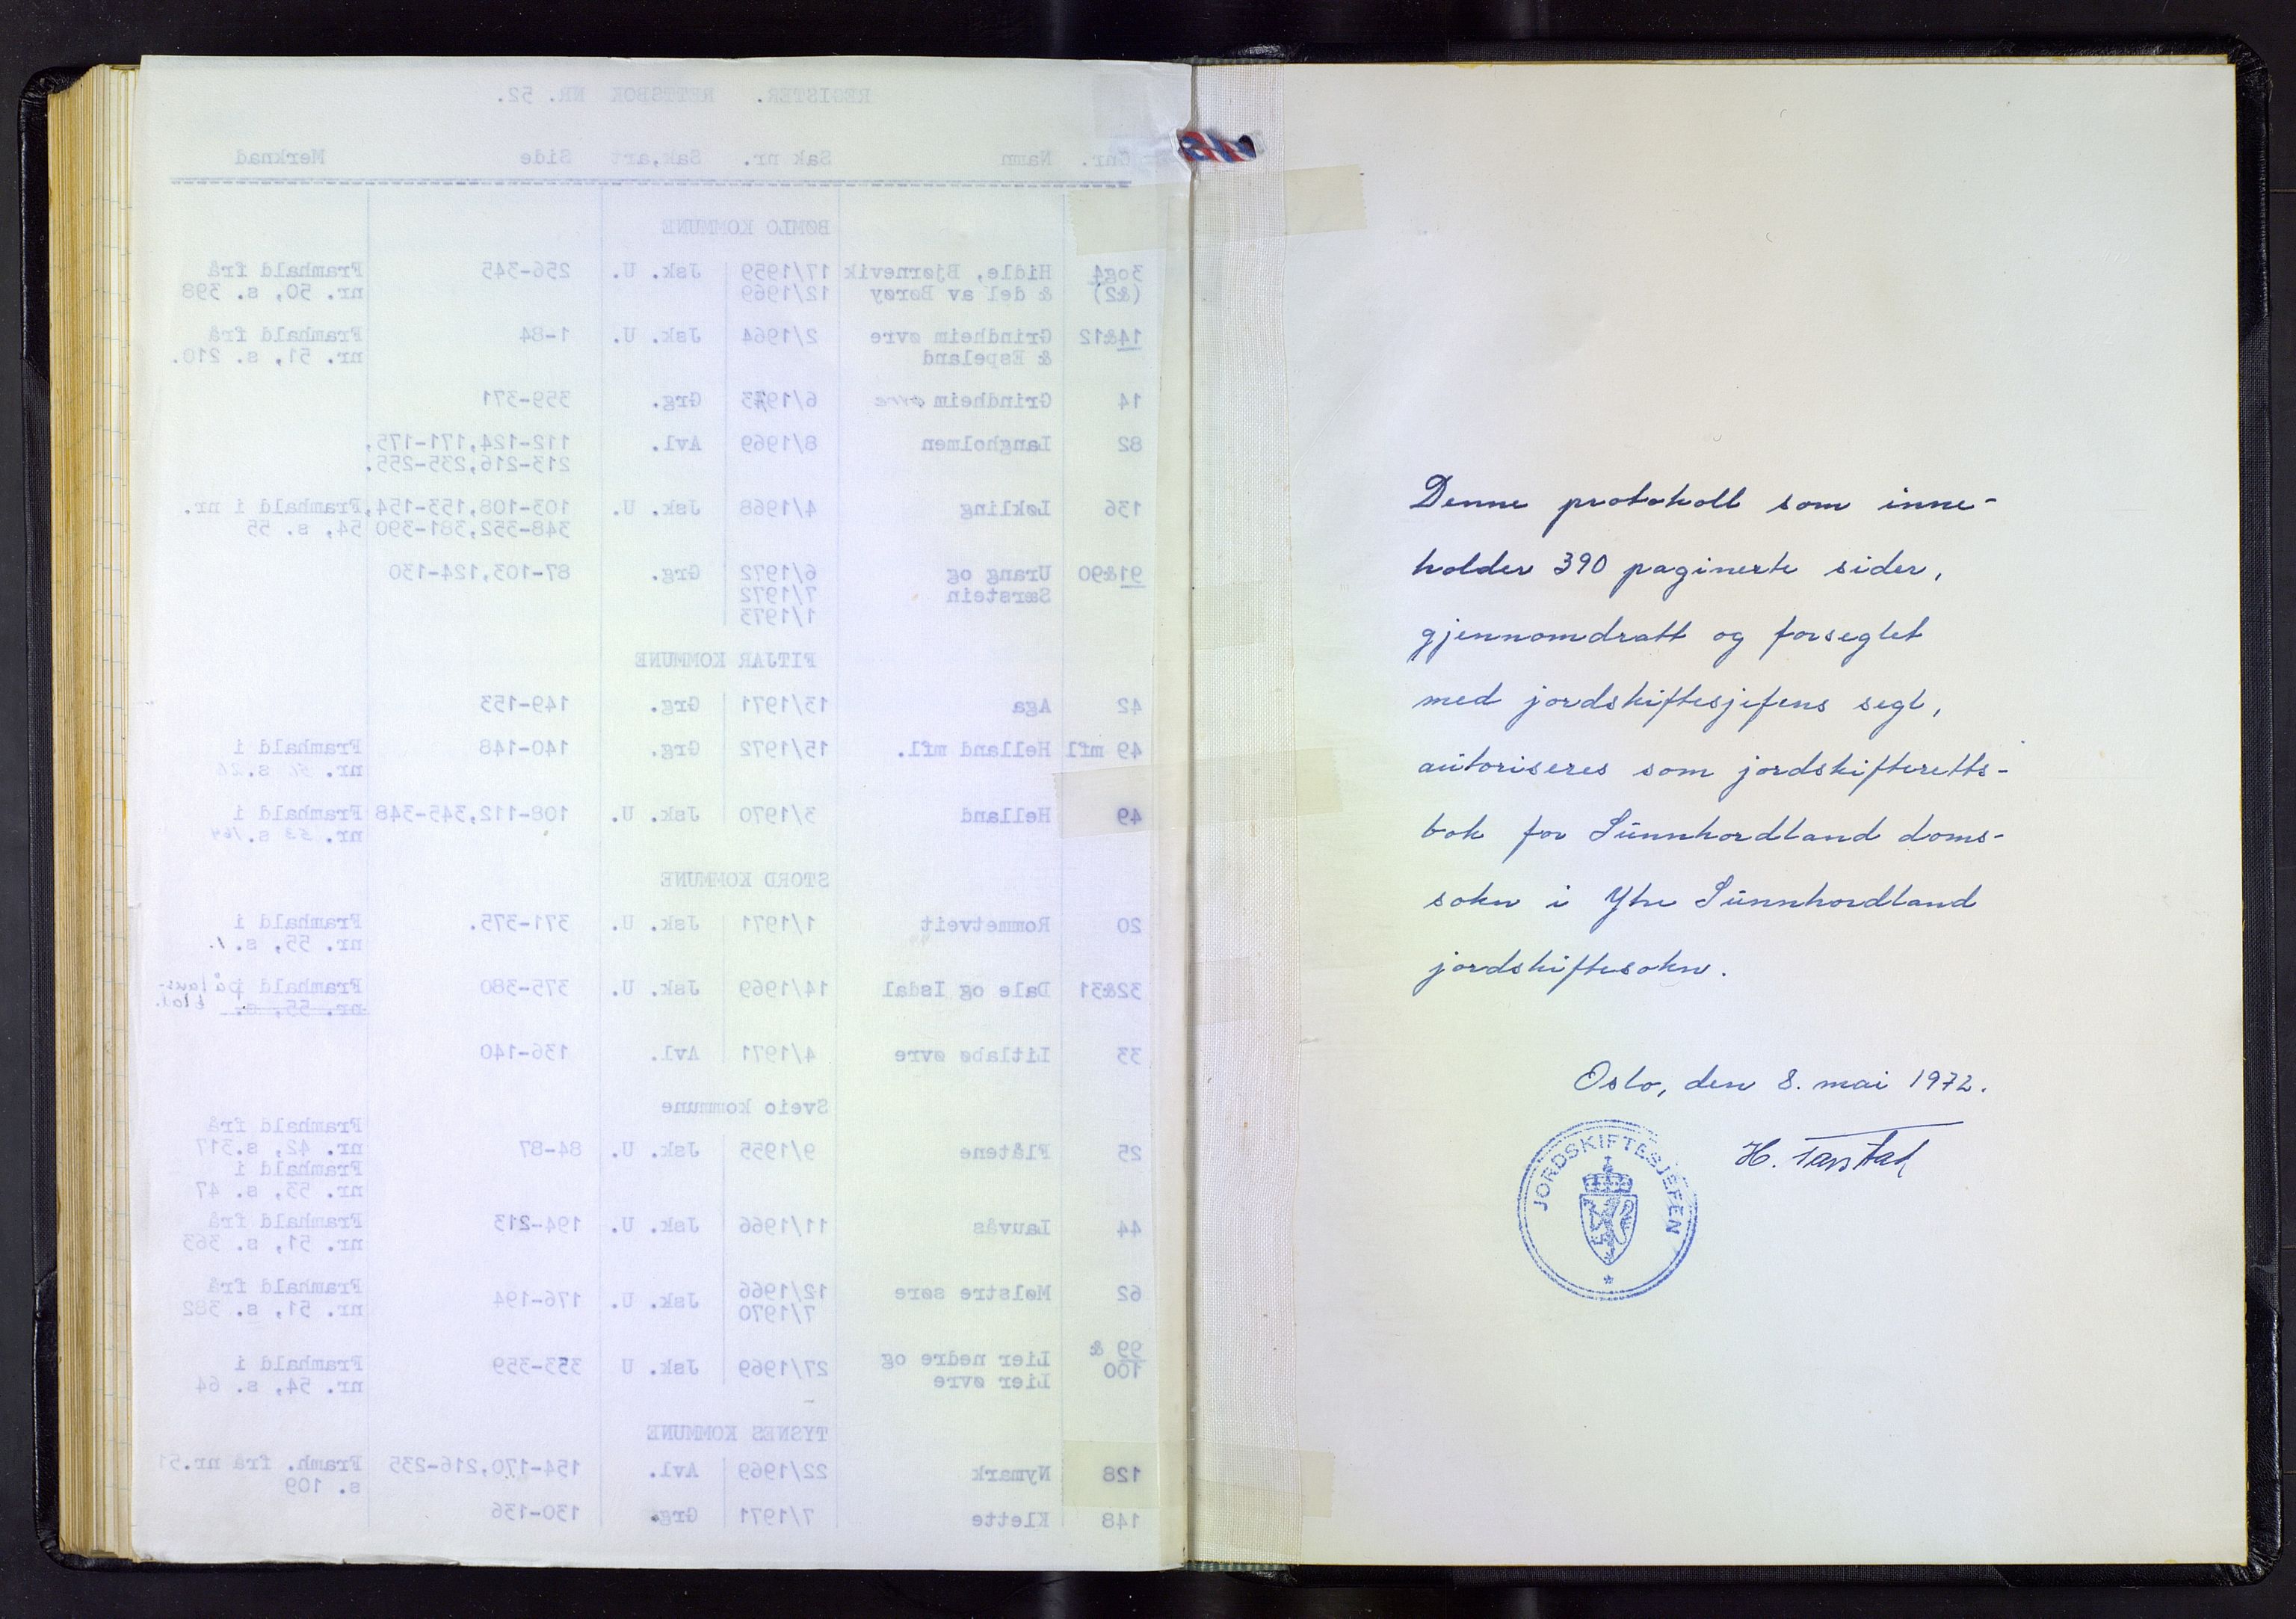 REGISTER. RETTSBOK NR. 52.
Gnr. Namn Sak nr. Sak.art Side Merknad
BØMLO KOMMUNE
3og4 Hidle, Bjørnevik 17/1959 Jsk. U. 256-345 Framhald frå
(&2) & del av Børøy 12/1969 nr. 50, s. 398
14&12 Grindheim øvre 2/1964 Jsk. U. 1-84 Framhald frå
& Espeland nr. 51, s. 210.
14 Grindheim øvre 6/1973 Grg. 359-371
82 Langholmen 8/1969 Avl. 112-124,171-175,
213-216,235-255.
136 Løkling 4/1968 Jsk. U. 103-108,153-154, Framhald i nr.
348-352,381-390 54, s. 55
91&90 Urang og 6/1972 Grg. 87-103,124-130
Særstein 7/1972
1/1973
FITJAR KOMMUNE
42 Aga 13/1971 Grg. 149-153
49 mfl Helland mfl. 15/1972 Grg. 140-148 Framhald i
nr. s.26
49 Helland 3/1970 Jsk. U. 108-112,345-348 Framhald i
nr. 53 s.164
STORD KOMMUNE
20 Rommetveit 1/1971 Jsk. U. 371-375. Framhald i
nr. 55, s. 1.
32&31 Dale og Isdal 14/1969 Jsk. U. 375-380 Framhald på laus-
nr. 55, s. blad.
33 Litlabø øvre 4/1971 Avl. 136-140
Sveio kommune
Framhald frå
25 Flåtene 9/1955 Jsk. U. 84-87 nr. 42, s.317
Framhald i
nr. 53, s. 47
44 Lauvås 11/1966 Jsk. U. 194-213 Framhald frå
nr. 51, s. 363
62 Mølstre søre 12/1966 Jsk. U. 176-194 Framhald frå
7/1970 nr. 51, s. 382
99 & Lier nedre og 27/1969 Jsk. U 353-359 Framhald i
100 Lier øvre nr. 54, s. 64
TYSNES KOMMUNE
128 Nymark 22/1969 Avl. 154-170,216-235 Framh. frå nr.51
s. 109
148 Klette 7/1971 Grg. 130-136
Denne protokoll som inne-
holder 390 paginerte sider,
gjennomdratt og forseglet
med jordskiftesjefens segl,
autoriseres som jordskifteretts-
bok for Sunnhordland doms-
sokn i Ytre Sunnhordland
jordskiftesokn.
Oslo, den 8. mai 1972.
H. Tarstad
JORDSKIFTESJEFEN